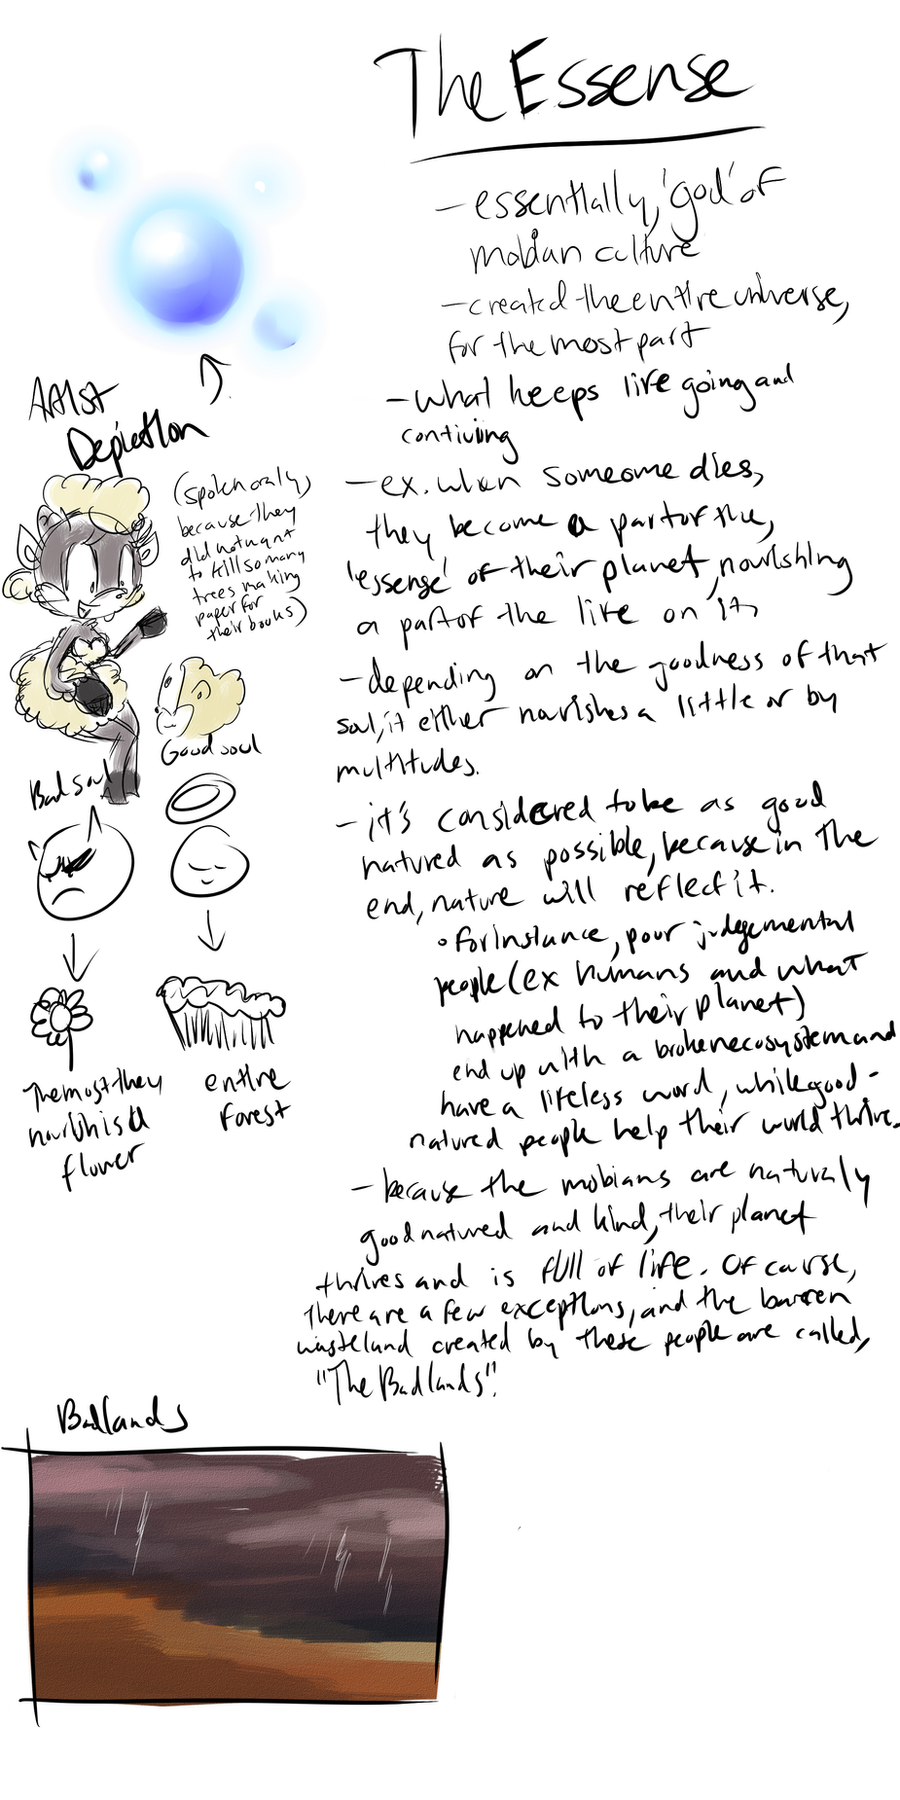 The Essense
- essentially, 'god' of
mobian culture
- created the entire universe,
for the most part
- what keeps life going and
contiuing
- ex. when someome dies,
they become a part of the,
'essense' of their planet, nourishing
a part of the life on it,
- depending on the goodness of that
soul, it either nourishes a little or by
multitudes.
- it's considered to be as good
natured as possible, because in the
end, nature will reflect it.
• for instance, pour judgemental
people (ex humans and what
happened to their planet)
end up with a broken ecosystem and
have a lifeless word, while good-
natured people help their world thrive.
- because the mobians are naturaly
good natured and kind, their planet
thrives and is full of life. Of course,
there are a few exceptions, and the barren
wasteland created by these people are called,
"The Badlands".
Artist
Depiction
(spoken orally,
because they
did not want
to kill so many
trees making
paper for
their books)
Good soul
Bad soul
The most they
nourish is a
flower
entire
forest
Badlands